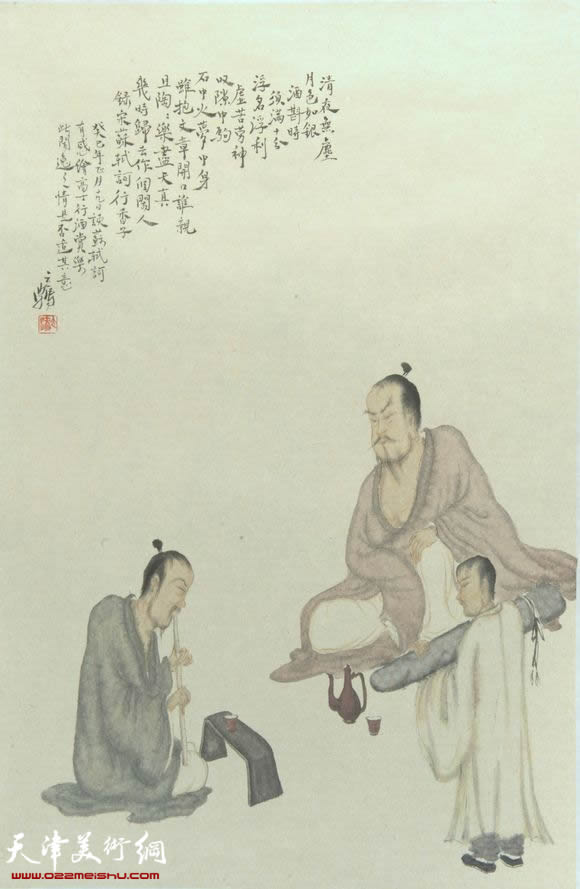 清夜無塵
月色如銀
酒斟時
須滿十分
浮名浮利
虛苦勞神
叹隙中駒
石中火夢中身
雖抱文章開口誰親
且陶々樂盡天真
幾時歸去作個閑人
錄宋蘇軾詞行香子
癸巳年正月十九日讀蘇軾詞
有感繪高士行酒賞樂
此閑逸之情是否達其意
天津美術網
www.022meishu.com